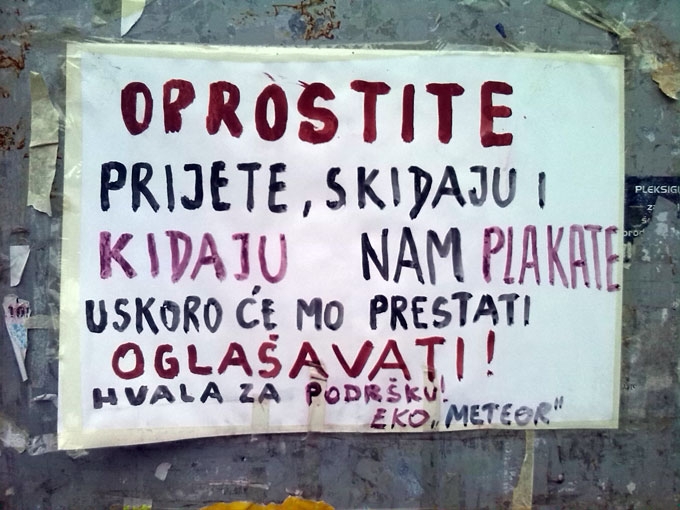 OPROSTITE
PRIJETE, SKIDAJU I
KIDAJU NAM PLAKATE
USKORO ĆE MO PRESTATI
OGLAŠAVATI!
HVALA ZA PODRŠKU!
EKO „METEOR"
PLEKSIG